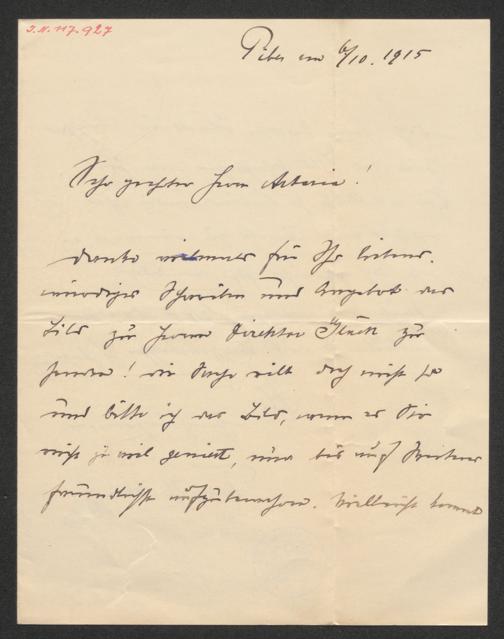 I.N. 117.927
Piber am 6/10. 1915
Sehr geehrter Herr Artaria!
danke vielmals für Ihr liebens-
würdiges Schreiben und Angebot das
Bild zu Herrn Direktor Glück zu
senden! die Sache eilt doch nicht so
und bitte ich das Bild, wenn es Sie
nicht zu viel geniert, nur bis auf Weiteres
freundlichst aufzubewahren. Vielleicht kommt